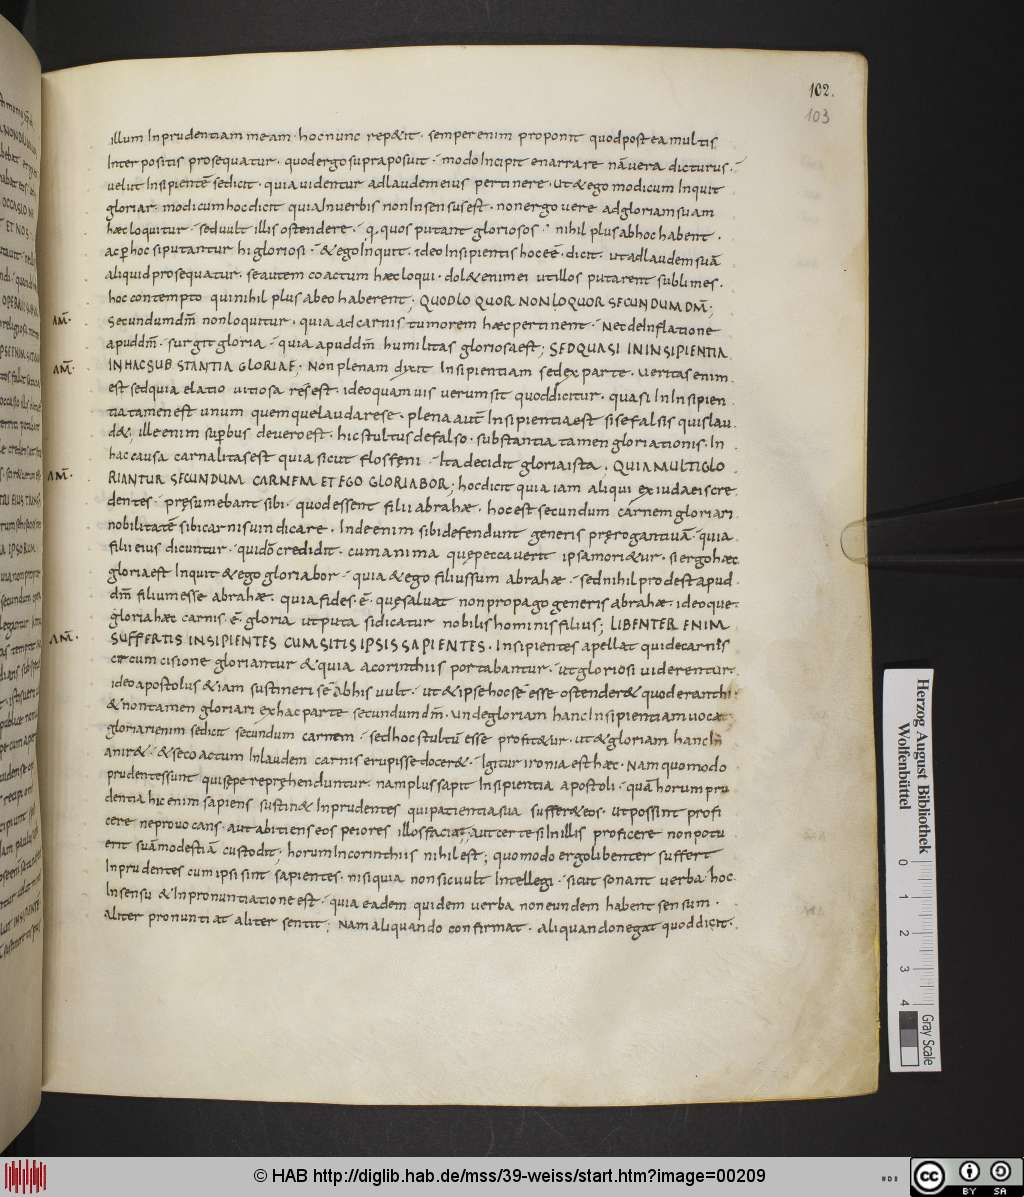 102.
103
illum Inprudentiam meam · hoc nunc rep&it · semper enim proponit quod postea multis
Inter positis prosequatur · quod ergo supra posuit · modo Incipit enarrare nā vera dicturus ·
velut Insipientē se dicit · quia uidentur ad laudem eius pertinere · ut & ego modicum Inquit
glorier · modicum hoc dicit quia In verbis non In sensus est · non ergo vere ad gloriam suam
hæc loquitur · sed vult illis ostendere · q, quos putant gloriosos · nihil plus ab hoc habent ·
ac p hoc si putantur hi gloriosi · & ego Inquit · ideo Insipientis hoc eē · dicit · ut ad laudem suā
aliquid prosequatur · se autem coactum hæc loqui · dol& enim ei ut illos putarent sublimes ·
hoc contempto qui nihil plus ab eo haberent ; QUOD LOQUOR NON LOQUOR SECUNDUM DM̄ ;
AM̄ ·
Secundum dm̄ non loquitur · quia ad carnis tumorem hæc pertinent · Nec de Inflatione
apud dm̄ · surgit gloria · quia apud dm̄ humilitas gloriosa est ; SED QUASI IN INSIPIENTIA
AM̄ ·
IN HAC SUBSTANTIA GLORIAE ; Non plenam dixit Insipientiam sed ex parte · veritas enim
est sed quia elatio vitiosa res est · ideo quam uis verum sit quod dicitur · quasi In Insipien
tia tamen est unum quemque laudare se · plena aut̄ Insipientia est si se falsis quis lau
d& ; ille enim supbus de vero est · hic stultus de falso · substantia tamen gloriationis · In
hac causa carnalitas est quia sicut flos feni · Ita decidit gloria ista · QUIA MULTI GLO
AM̄ ·
RIANTUR SECUNDUM CARNEM ET EGO GLORIABOR ; hoc dicit quia iam aliqui ex iudaeis cre
dentes · presumebant sibi · quod essent filii abrahæ · hoc est secundum carnem gloriari
nobilitatē sibi carnis uindicare · Inde enim sibi defendunt generis prerogantiuā · quia
filii eius dicuntur · qui dō credidit · cum anima que peccaverit ipsa mori&ur · si ergo hæc
gloria est Inquit & ego gloriabor · quia & ego filius sum abrahæ · sed nihil prodest apud
dm̄ filium esse abrahæ · quia fides · ē · que saluat non propago generis abrahæ · ideoque ·
gloria hæc carnis · ē · gloria ut puta si dicatur nobilis hominis filius ; LIBENTER ENIM
AM̄ ·
SUFFERTIS INSIPIENTES CUM SITIS IPSI SAPIENTES · Insipientes apellat qui de carnis
circumcisione gloriantur & quia a corinthiis portabantur · ut gloriosi viderentur ·
ideo apostolus & iam sustineri sē abhis uult · ut & ipse hoc sē esse ostender& quod erant hi ·
& non tamen gloriari ex hac parte secundum dm̄ · unde gloriam hanc Insipientiam uocat
gloriari enim se dicit secundum carnem · sed hoc stultū esse profit&ur · ut & gloriam hanc In
anir& · & se coactum In laudem carnis erupisse docer& · Igitur ironia est hæc · Nam quomodo
prudentes sunt qui sepe reprehenduntur · nam plus sapit Insipientia apostoli · quā horum pru
dentia hic enim sapiens sustin& Inprudentes qui patientia sua suffer& eos · ut possint profi
cere ne provocans · aut abitiens eos peiores illos faciat ; aut certe si In illis proficere non potu
erit suā modestiam custodit ; horum In corinthiis nihil est ; quomodo ergo libenter suffert
Inprudentes cum ipsi sint sapientes · nisi quia non sic uult Intellegi · sicut sonant verba · hoc
In sensu & In pronuntiatione est · quia eadem quidem verba non eundem habent sensum ·
aliter pronuntiat aliter sentit ; Nam aliquando confirmat · aliquando negat quod dicit ·
Herzog August Bibliothek
Wolfenbüttel
0 1 2 3 4
Gray Scale
© HAB http://diglib.hab.de/mss/39-weiss/start.htm?image=00209
cc BY SA